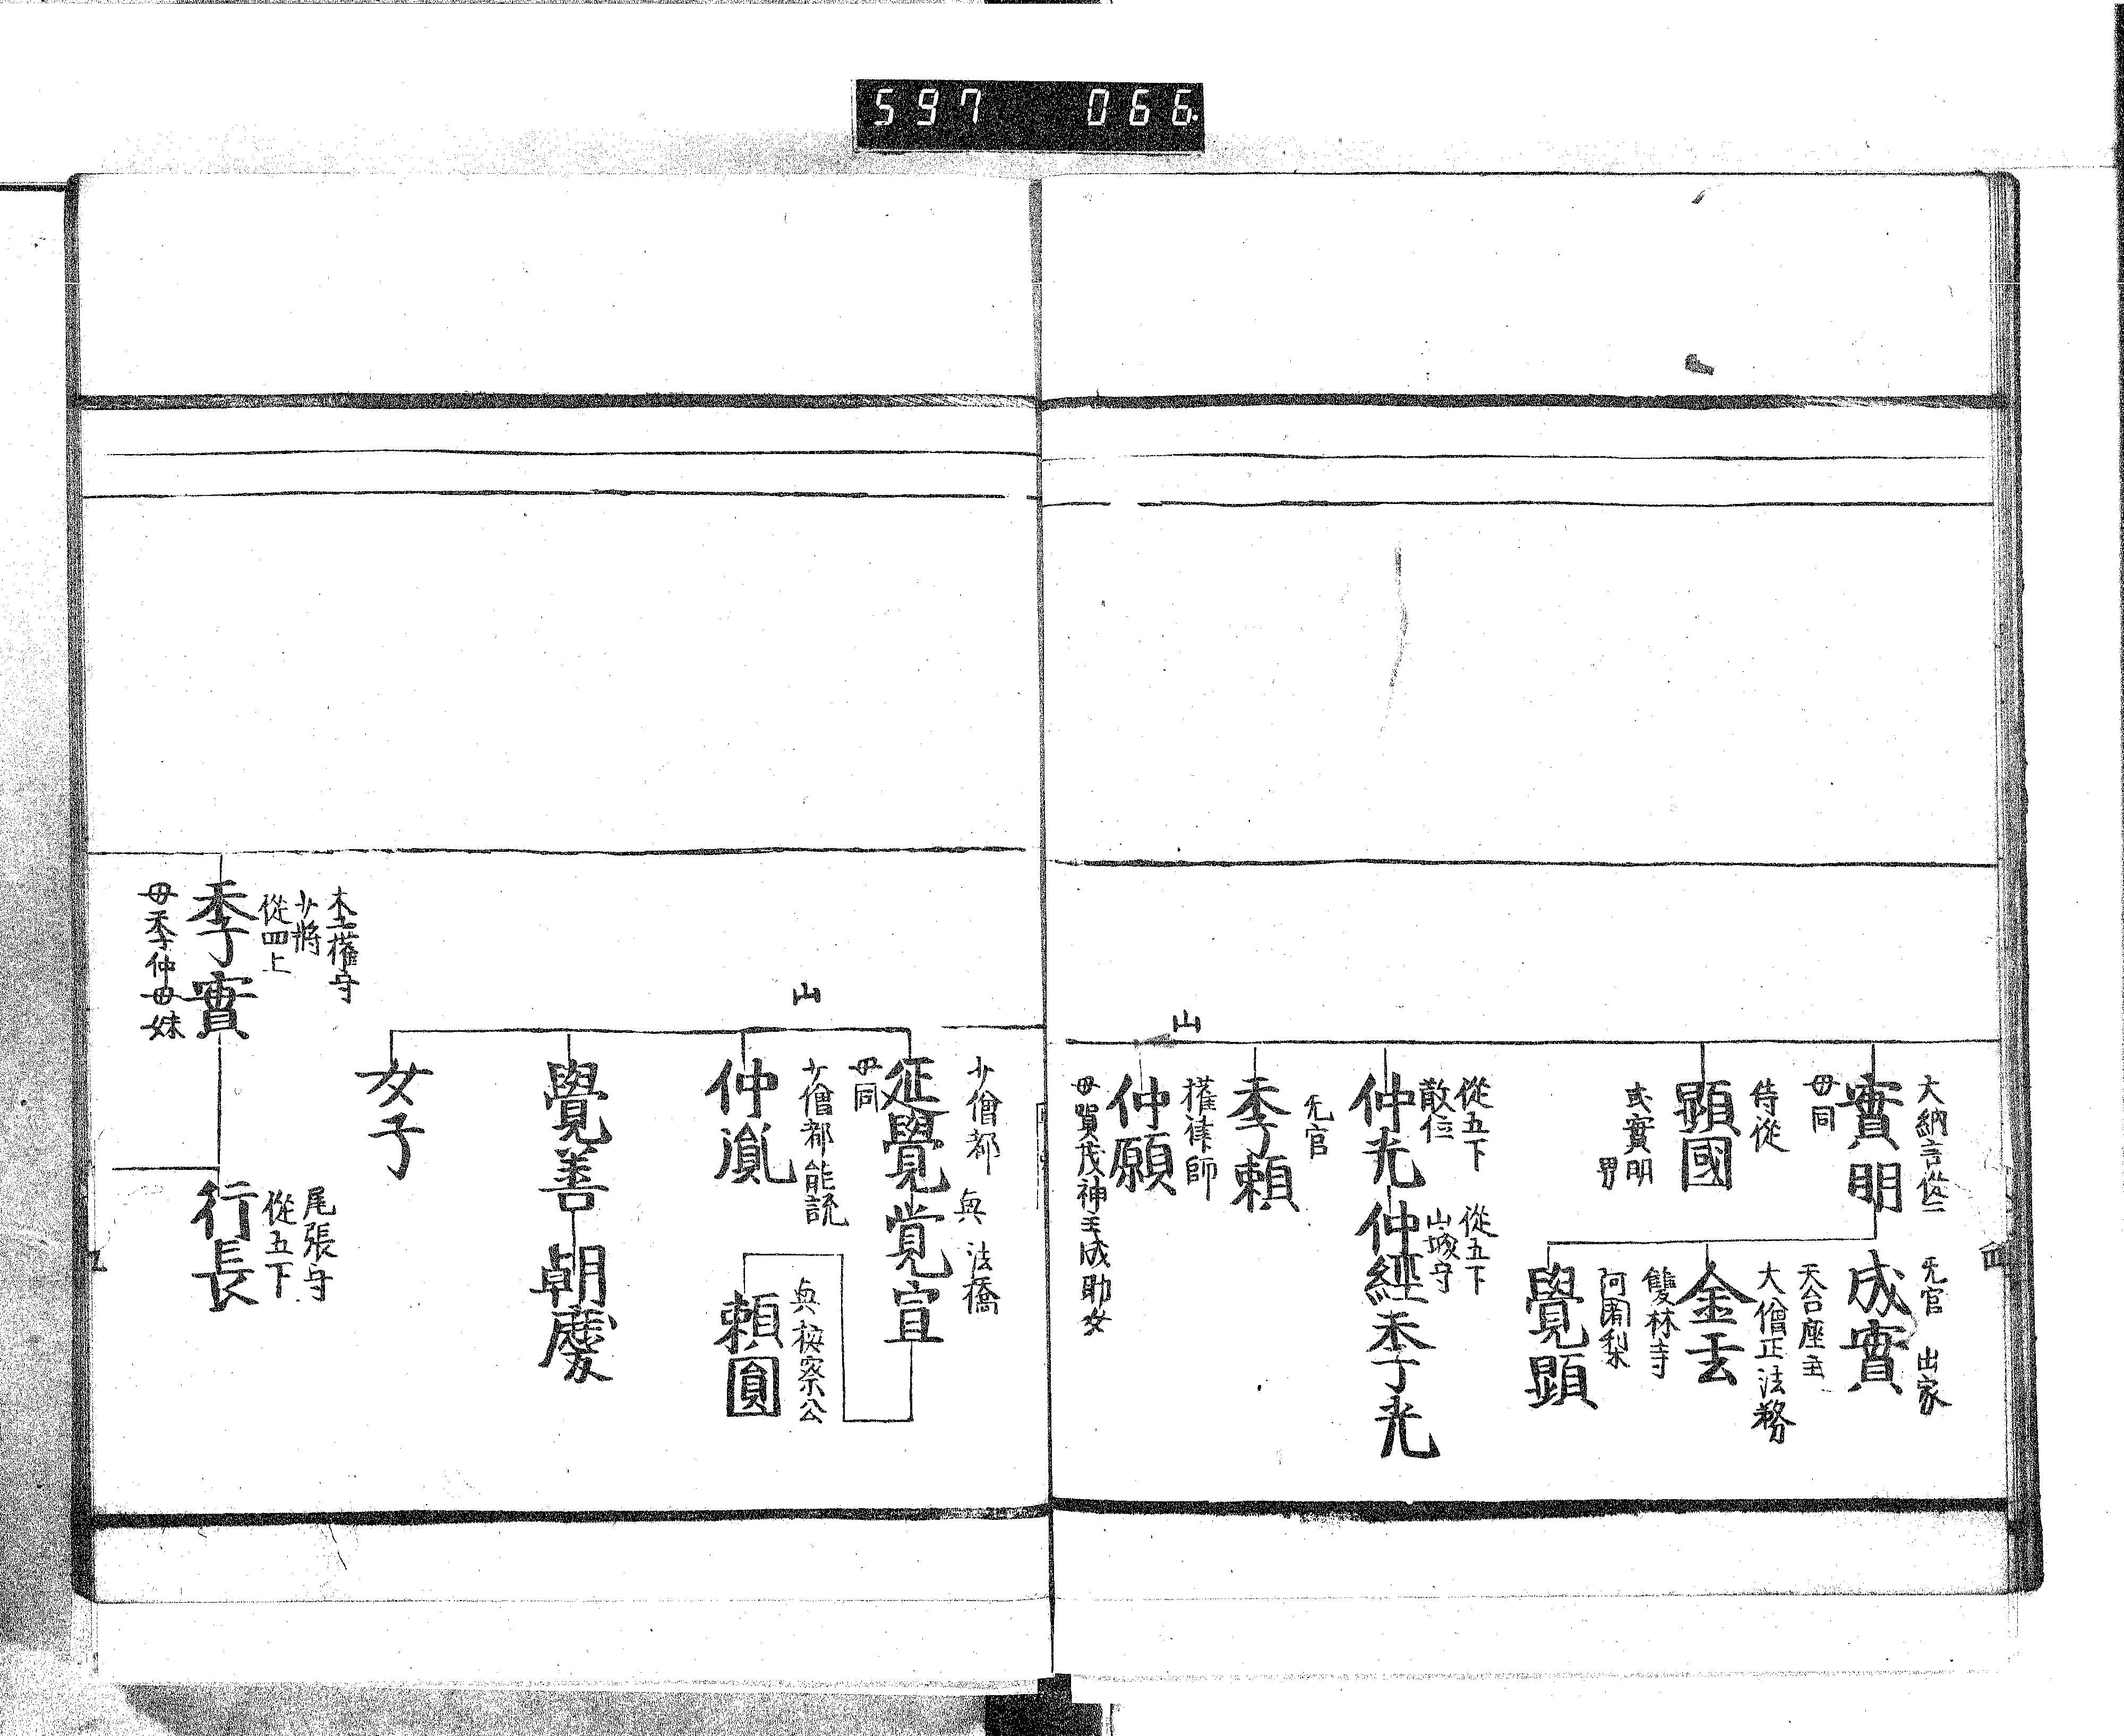 597 066
大納言 従二
實明
母同
无官 出家
成實
侍従
顕國
或實明
男
天台座主
大僧正法務
全玄
雙林寺
阿闍梨
覺顕
従五下
散位
仲光
従五下
山城守
仲經
季光
无官
季頼
山
權律師
仲願
母賀茂神主成助女
少僧都
延覺
母同
法橋
覚宣
山
少僧都能説
仲胤
按察公
頼圓
覺善
朝慶
女子
木工權守
少将
従四上
季實
母季仲母妹
尾張守
従五下
行長